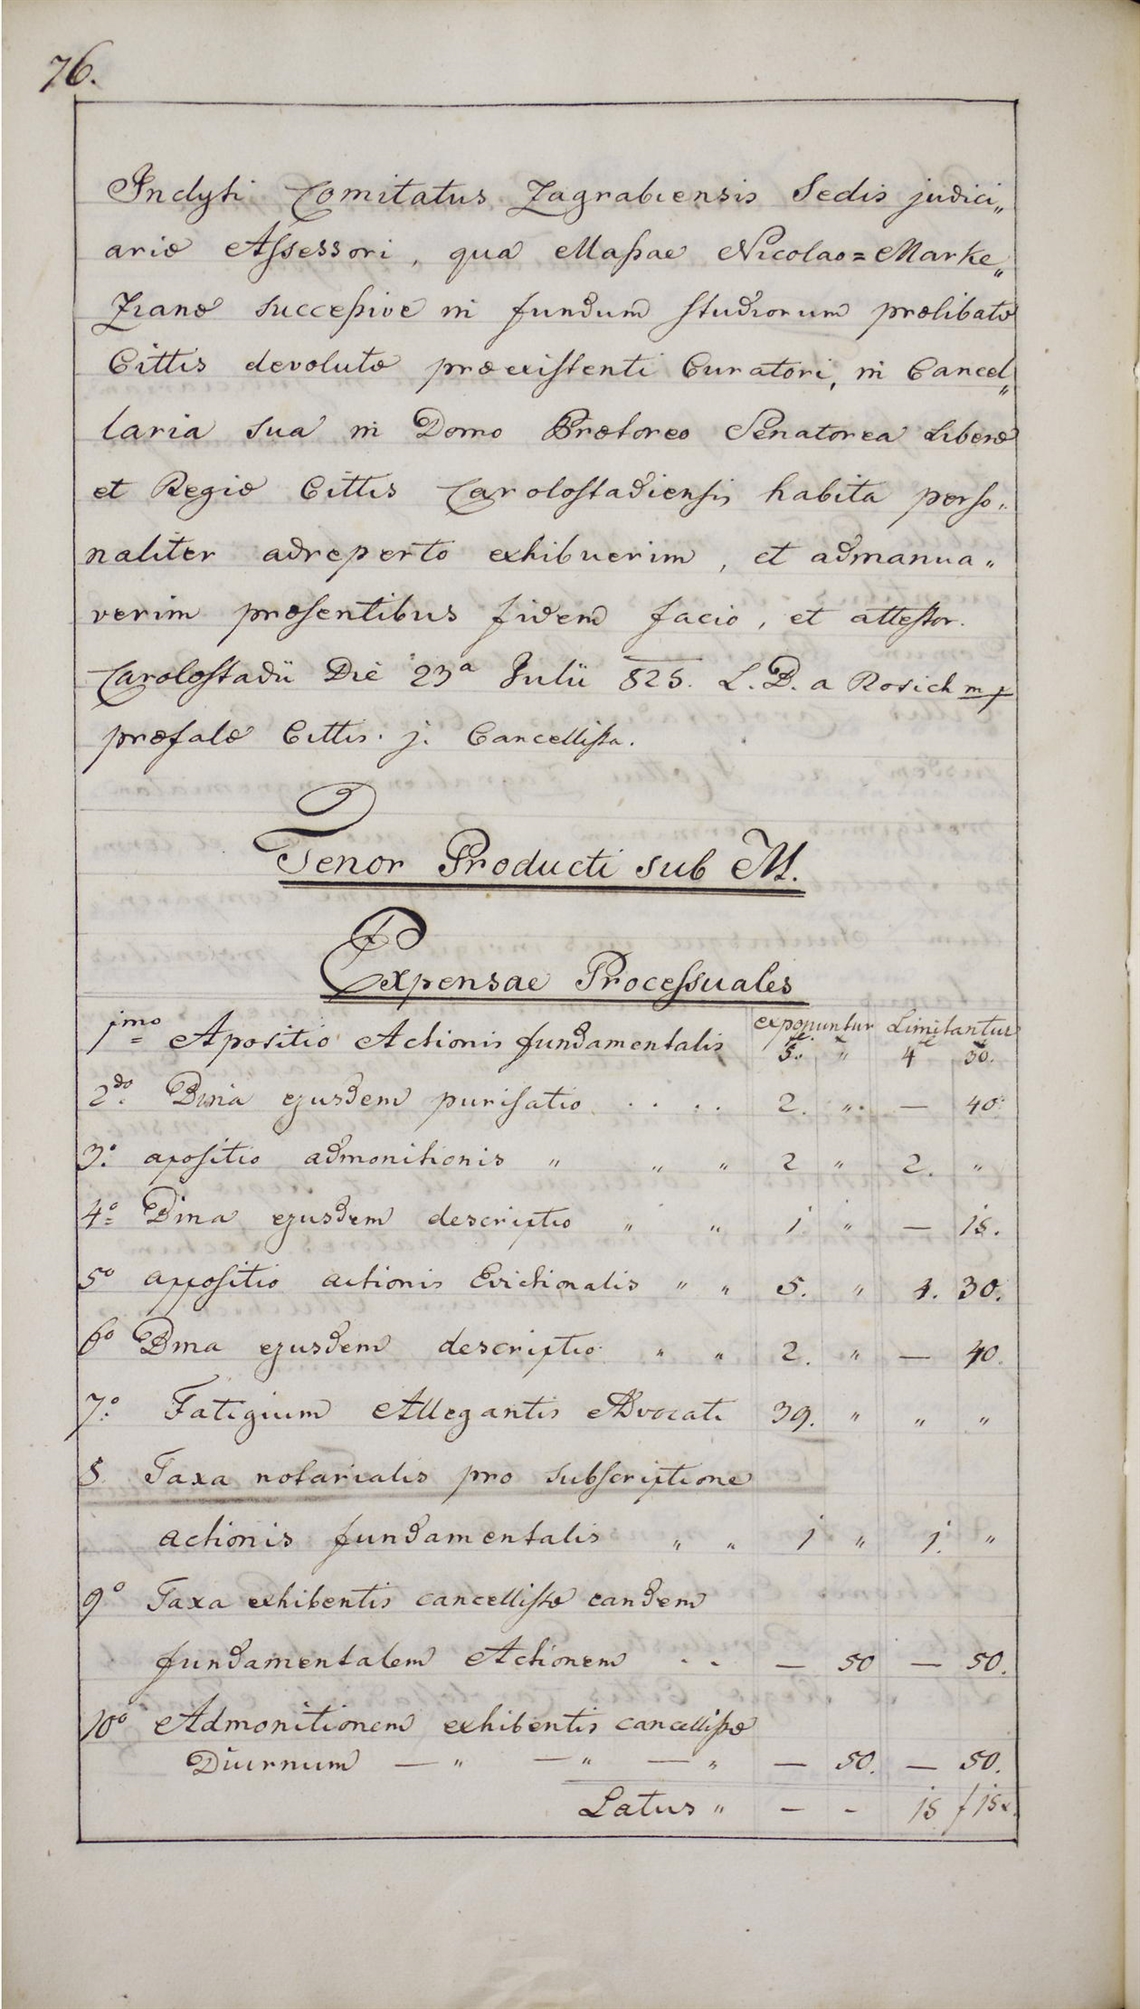 76.
Inclyti Comitatus Zagrabiensis Sedis judici„
ariæ Assessori, qua Massae Nicolao=Marke„
Zianæ successive in fundum studiorum prælibatæ
Cittis devolutæ præexistenti Curatori, in Cancel„
laria sua in Domo Prætoreo Senatorea Liberæ
et Regiæ Cittis Carolostadiensis habita perso„
naliter adreperto exhibuerim, et admanua„
verim præsentibus fidem facio, et attestor.
Carolostadii Die 23a Julii 825. L. B. a Rosich mp
præfatæ Cittis. j. Cancellista.
Tenor Producti sub M.
Expensae Processuales
exponuntur Limitantur
1mo Apositio Actionis fundamentalis 5. „ 4 30.
2do. Bina ejusdem purisatio . . . . 2. „. — 40.
3o. apositio admonitionis „ „ „ 2 „ 2. „
4o. Bina ejusdem descriptio „ „ 1 „ — 15.
5o appositio actionis Evictionalis „ „ 5. „ 4. 30.
6o Bina ejusdem descriptio „ „ 2. „ — 40.
7o. Fatigium Allegantis Advocati 39. „ „ „
8 Taxa notarialis pro subscriptione
actionis fundamentalis „ „ 1 „ 1. „
9o Taxa exhibentis cancellistæ eandem
fundamentalem Actionem . . — 50 — 50.
10o Admonitionem exhibentis cancellistæ
Diurnum — „ — „ — „ — 50. — 50.
Latus „ — - 15 f 15x.